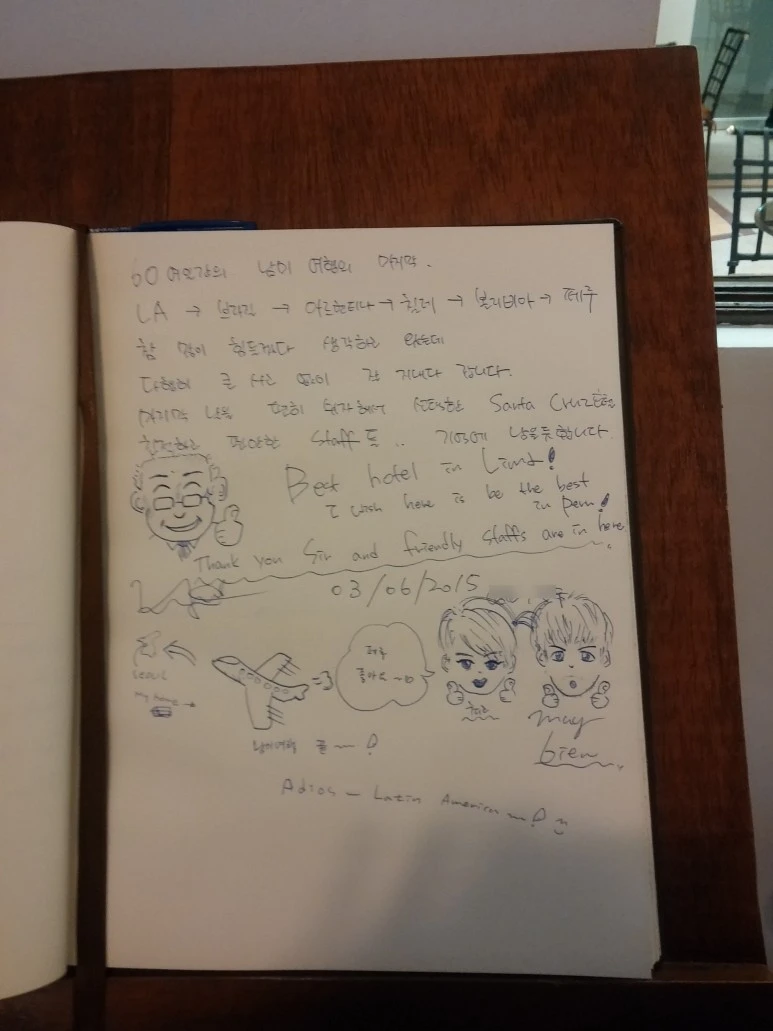 60여일간의 남미 여행의 마지막.
LA → 브라질 → 아르헨티나 → 칠레 → 볼리비아 → 페루
참 많이 힘들겠다 생각하고 왔는데
다행히 큰 사고 없이 잘 지내다 갑니다.
마지막 날을 편히 쉬자해서 선택한 Santa Cruz호텔
친절하고 편안한 staff들.. 기억에 남을듯 합니다.
Best hotel in Lima!
I wish here is be the best
in Peru!
Thank you Sir and friendly staffs are in here.
03/06/2015
seoul
My home →
페루
좋아요~
남미여행 끝~!
muy
bien
Adios - Latin America~!